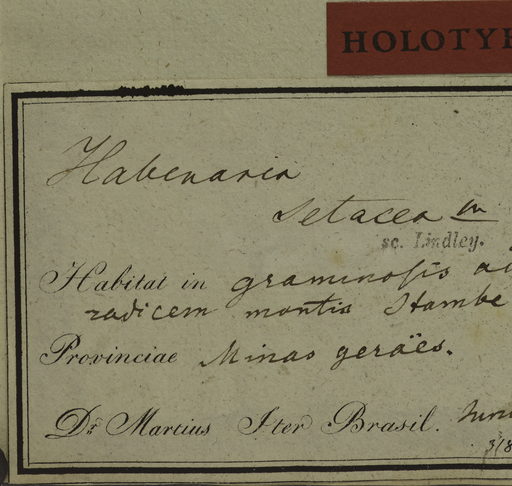 HOLOTYP
Habenaria
setacea m
sc. Lindley.
Habitat in graminosis ad
radicem montis Itambe
Provinciae Minas geraës.
Dr. Martius Iter Brasil.